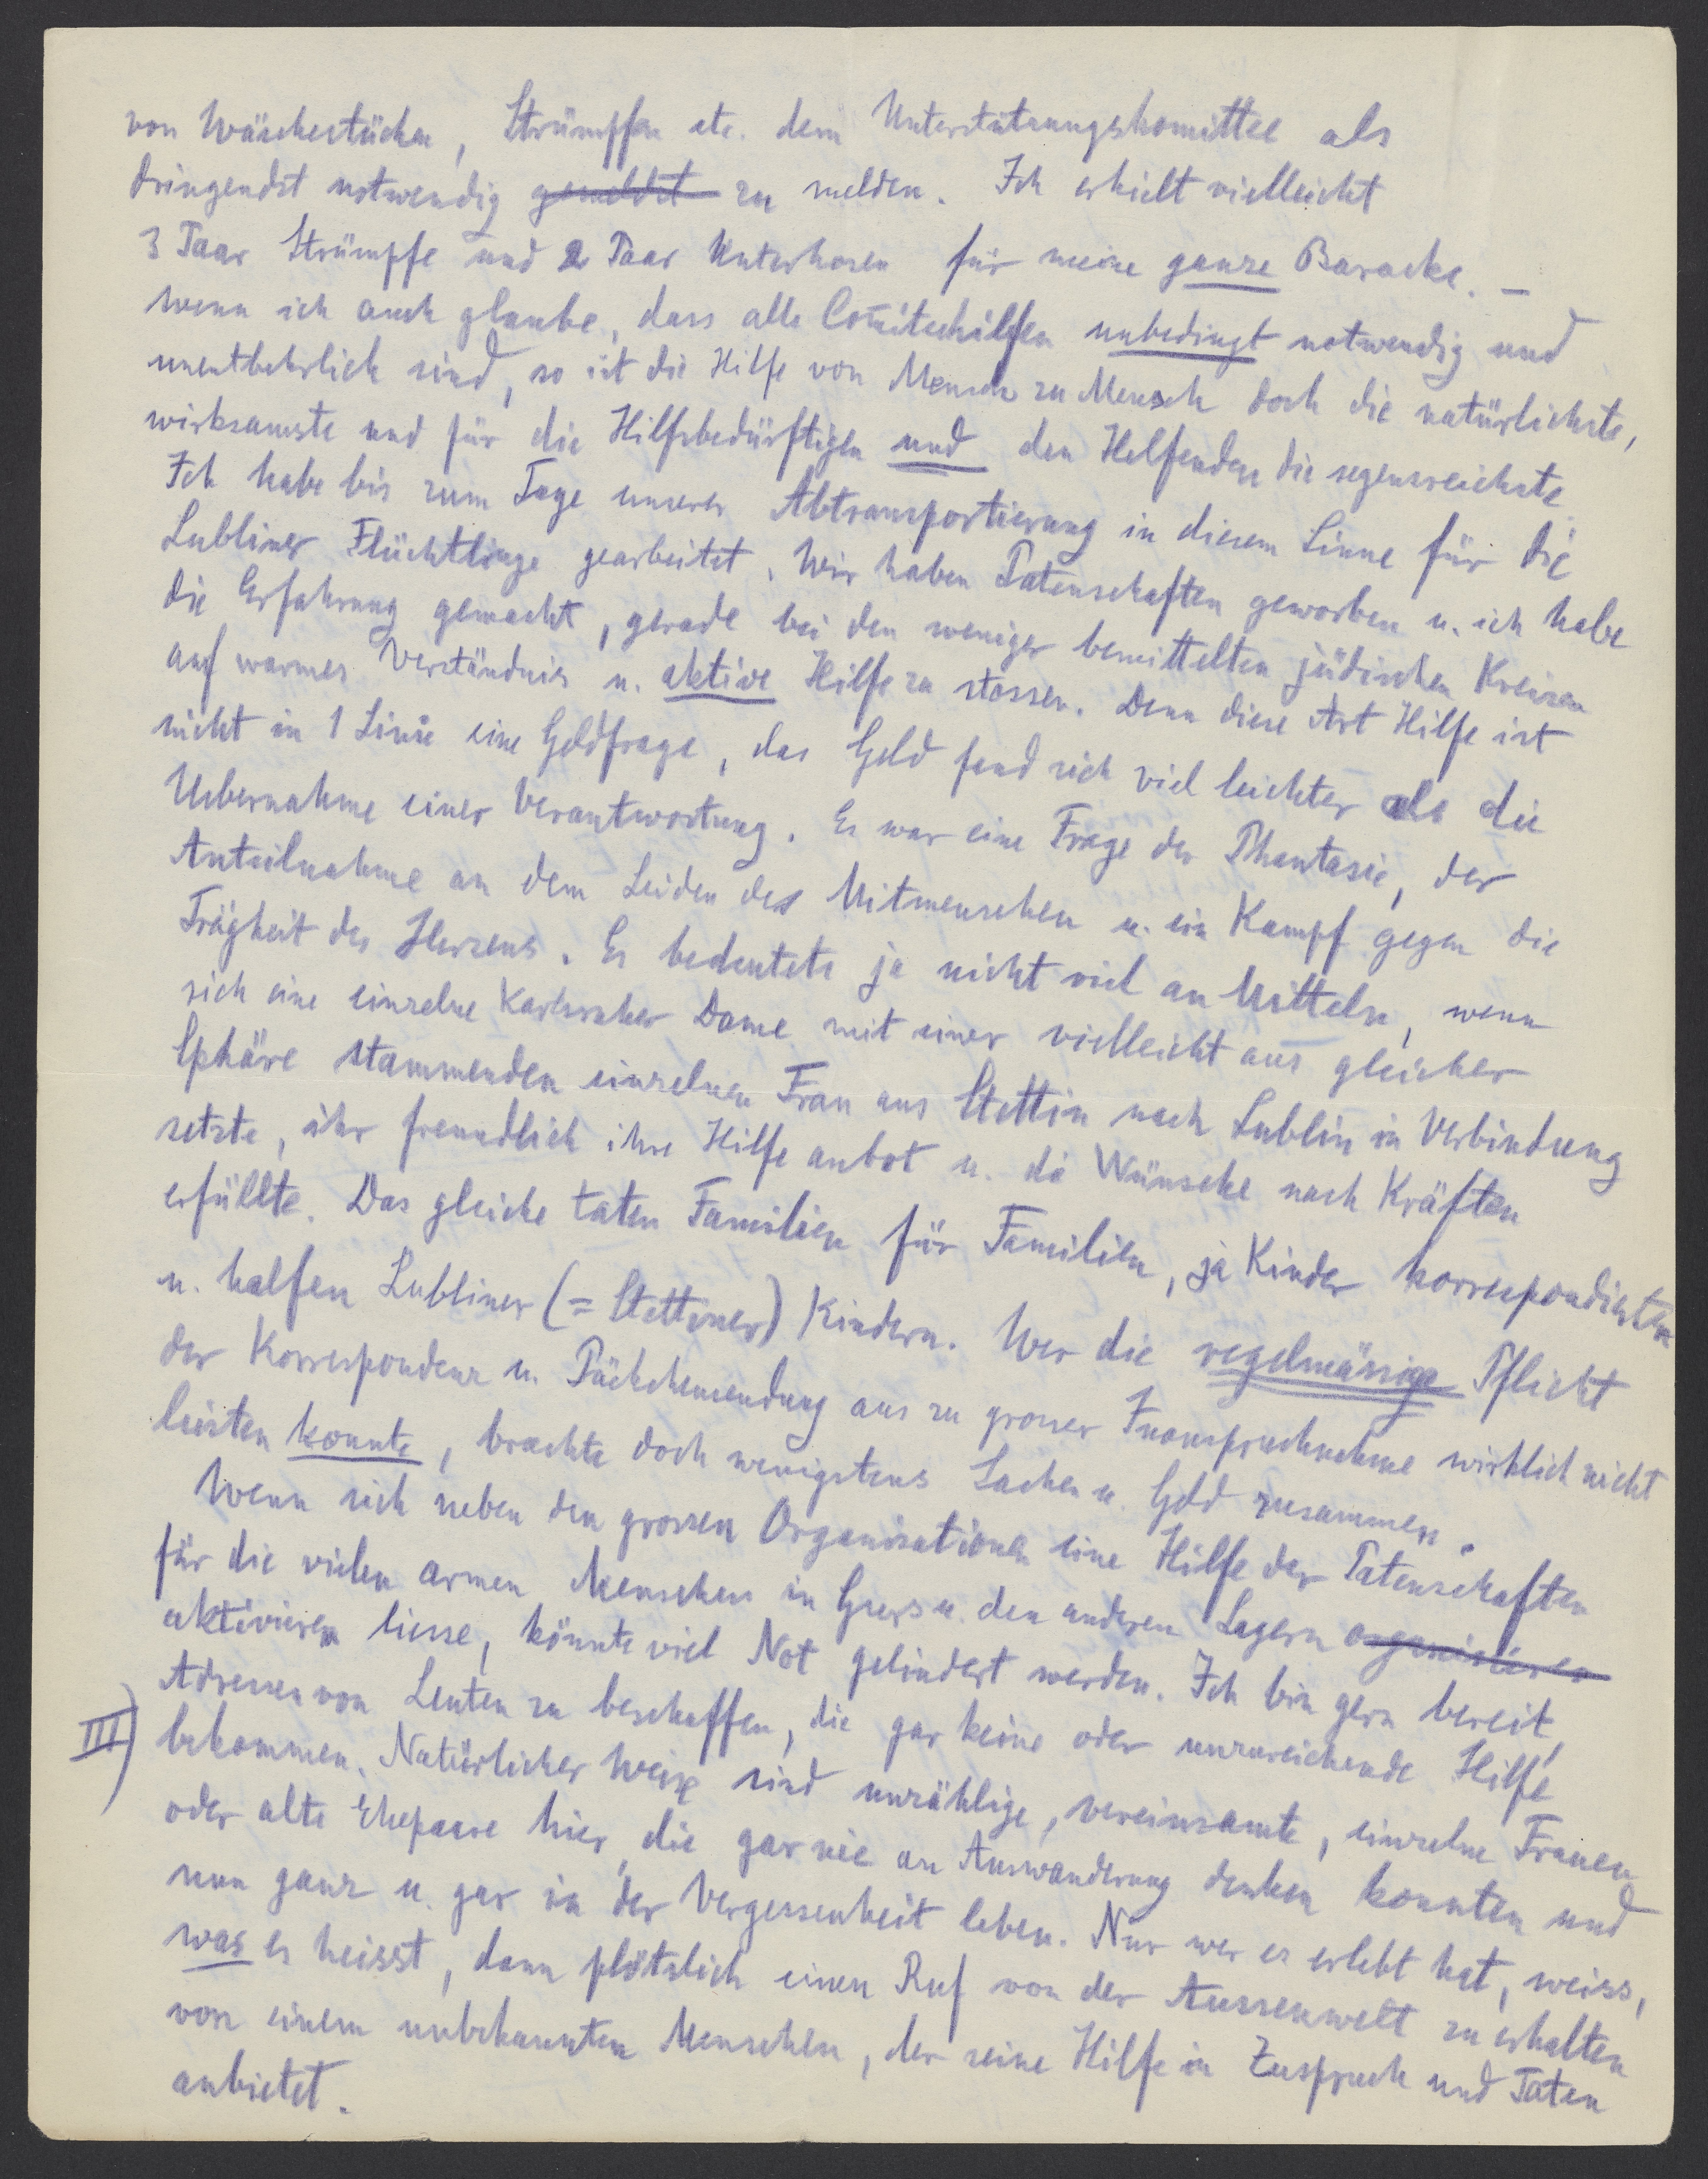 von Wäschestücken, Strümpfen etc. dem Unterstützungskomittee als
dringendst notwendig gemeldet zu melden. Ich erhielt vielleicht
3 Paar Strümpfe und 2 Paar Unterhosen für meine ganze Baracke. –
Wenn ich auch glaube, dass alle Com̅iteehilfen unbedingt notwendig und
unentbehrlich sind, so ist die Hilfe von Mensch zu Mensch doch die natürlichste,
wirksamste und für die Hilfsbedürftigen und den Helfenden die segensreichste.
Ich habe bis zum Tage unserer Abtransportierung in diesem Sinne für die
Lubliner Flüchtlinge gearbeitet. Wir haben Patenschaften geworben u. ich habe
die Erfahrung gemacht, gerade bei den weniger bemittelten jüdischen Kreisen
auf warmes Verständnis u. aktive Hilfe zu stossen. Denn diese Art Hilfe ist
nicht in 1 Linie eine Geldfrage, das Geld fand sich viel leichter als die
Uebernahme einer Verantwortung. Es war eine Frage der Phantasie, der
Anteilnahme an dem Leiden des Mitmenschen u. ein Kampf gegen die
Trägheit des Herzens. Es bedeutete ja nicht viel an Mitteln, wenn
sich eine einzelne Karlsruher Dame mit einer vielleicht aus gleicher
Sphäre stammenden einzelnen Frau aus Stettin nach Lublin in Verbindung
setzte, ihr freundlich ihre Hilfe anbot u. die Wünsche nach Kräften
erfüllte. Das gleiche taten Familien für Familien, ja Kinder korrespondierten
u. halfen Lubliner (= Stettiner) Kindern. Wer die regelmässige Pflicht
der Korrespondenz u. Päckchensendung aus zu grosser Inanspruchnahme wirklich nicht
leisten konnte, brachte doch wenigstens Sachen u. Geld zusammen.
Wenn sich neben den grossen Organisationen eine Hilfe der Patenschaften
für die vielen armen Menschen in Gurs u. den anderen Lagern organisieren
aktivieren liesse, könnte viel Not gelindert werden. Ich bin gern bereit,
Adressen von Leuten zu beschaffen, die gar keine oder unzureichende Hilfe
III) bekommen. Natürlicher Weise sind unzählige, vereinsamte, einzelne Frauen
oder alte Ehepaare hier, die gar nie an Auswanderung denken konnten und
nun ganz u. gar in der Vergessenheit leben. Nur wer es erlebt hat, weiss,
was es heisst, dann plötzlich einen Ruf von der Aussenwelt zu erhalten
von einem unbekannten Menschen, der seine Hilfe in Zuspruch und Taten
anbietet.